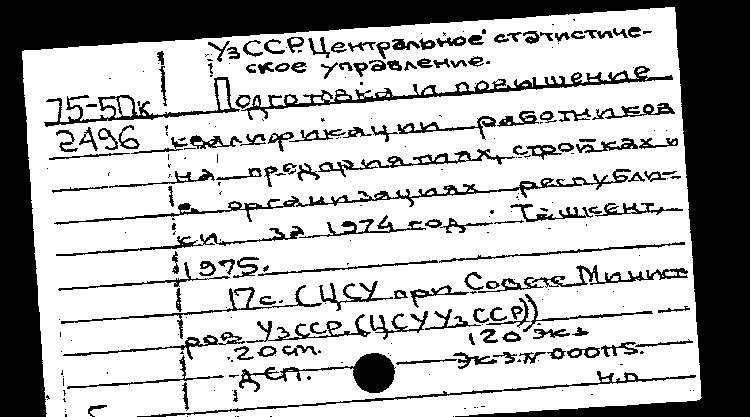 УзССР. Центральное статистиче-
ское управление.
75-5Дк Подготовка и повышение
2496 квалификации работников
на предприятиях, стройках и
в организациях республи-
ки за 1974 год. Ташкент,
1975.
17с. (ЦСУ при Совете Минист
ров УзССР. (ЦСУ УзССР))
20см. 120 экз
ДСП. Экз.N 000115.
н.п.